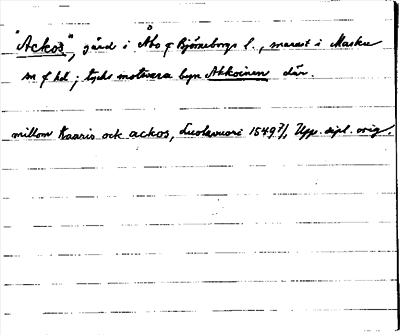 "Ackos", gård i Åbo o Björneborgs l., snarast i Masku
sn o hd; tycks motsvara byn Akkoinen där.
millom Kaaris ock ackos, Luolavuori 1549 7/1 Upp. dipl. orig.